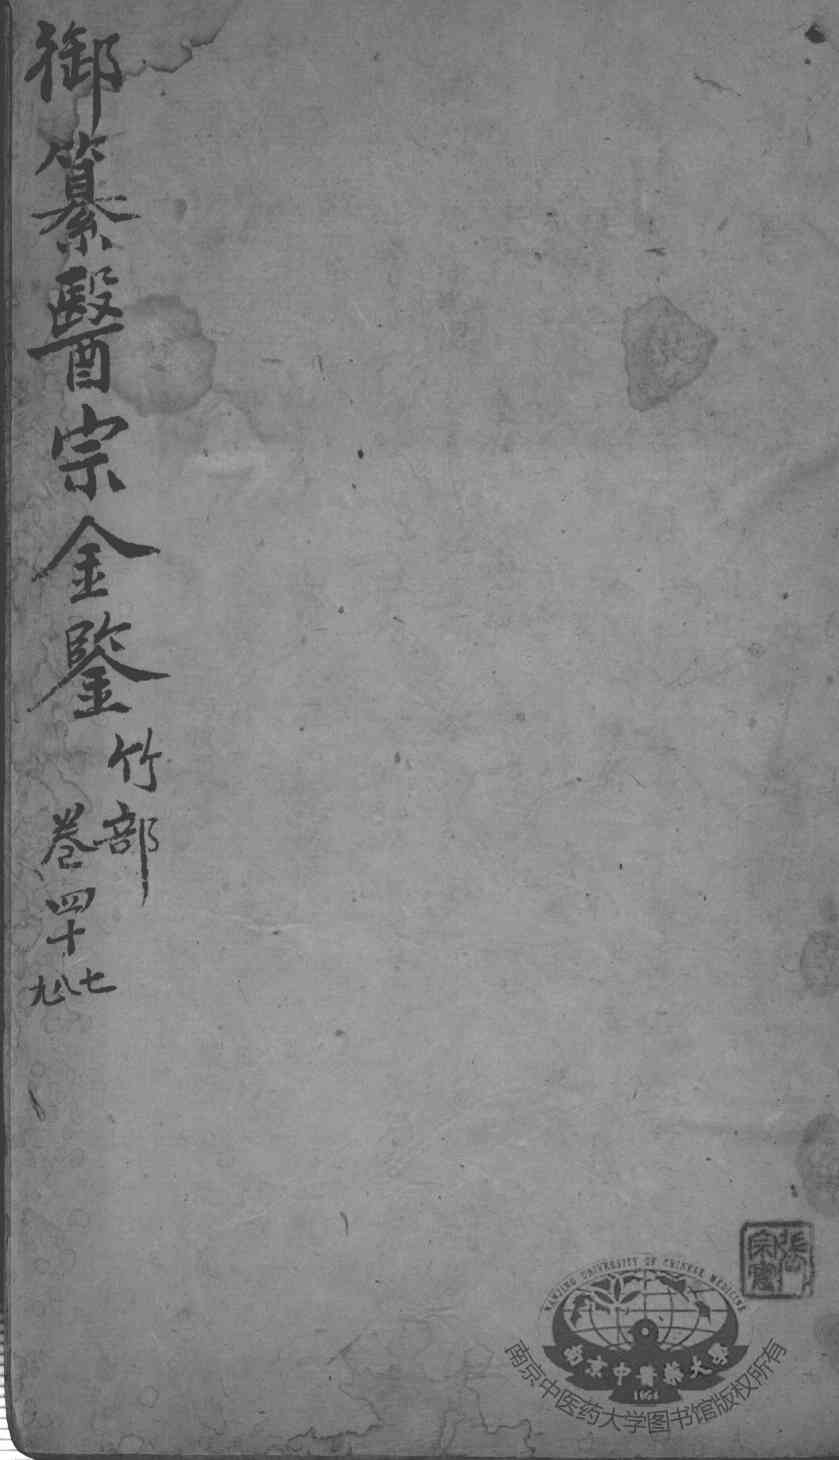 御纂醫宗金鑒
竹部
卷四十
七八九
NANJING UNIVERSITY OF CHINESE MEDICINE
南京中醫藥大學
1954
南京中医药大学图书馆版权所有